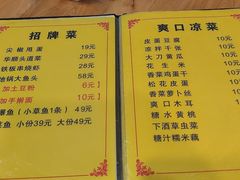 招牌菜
尖椒甩面 19元
华顺头道菜 29元
铁板串烧虾 58元
地锅大鱼头 58元
加土豆粉 6元】
加手擀面 10元】
鱼(小草鱼1条) 49元
鱼 小份39元 大份49元
爽口凉菜
皮蛋豆腐 10元
凉拌千张 10元
大刀黄瓜 10元
花生米 10元
香菜鸡蛋干 10元
松花皮蛋 10元
香菜萝卜丝 10元
爽口木耳
糖水黄桃
下酒草虫菜
糖汁糯米藕